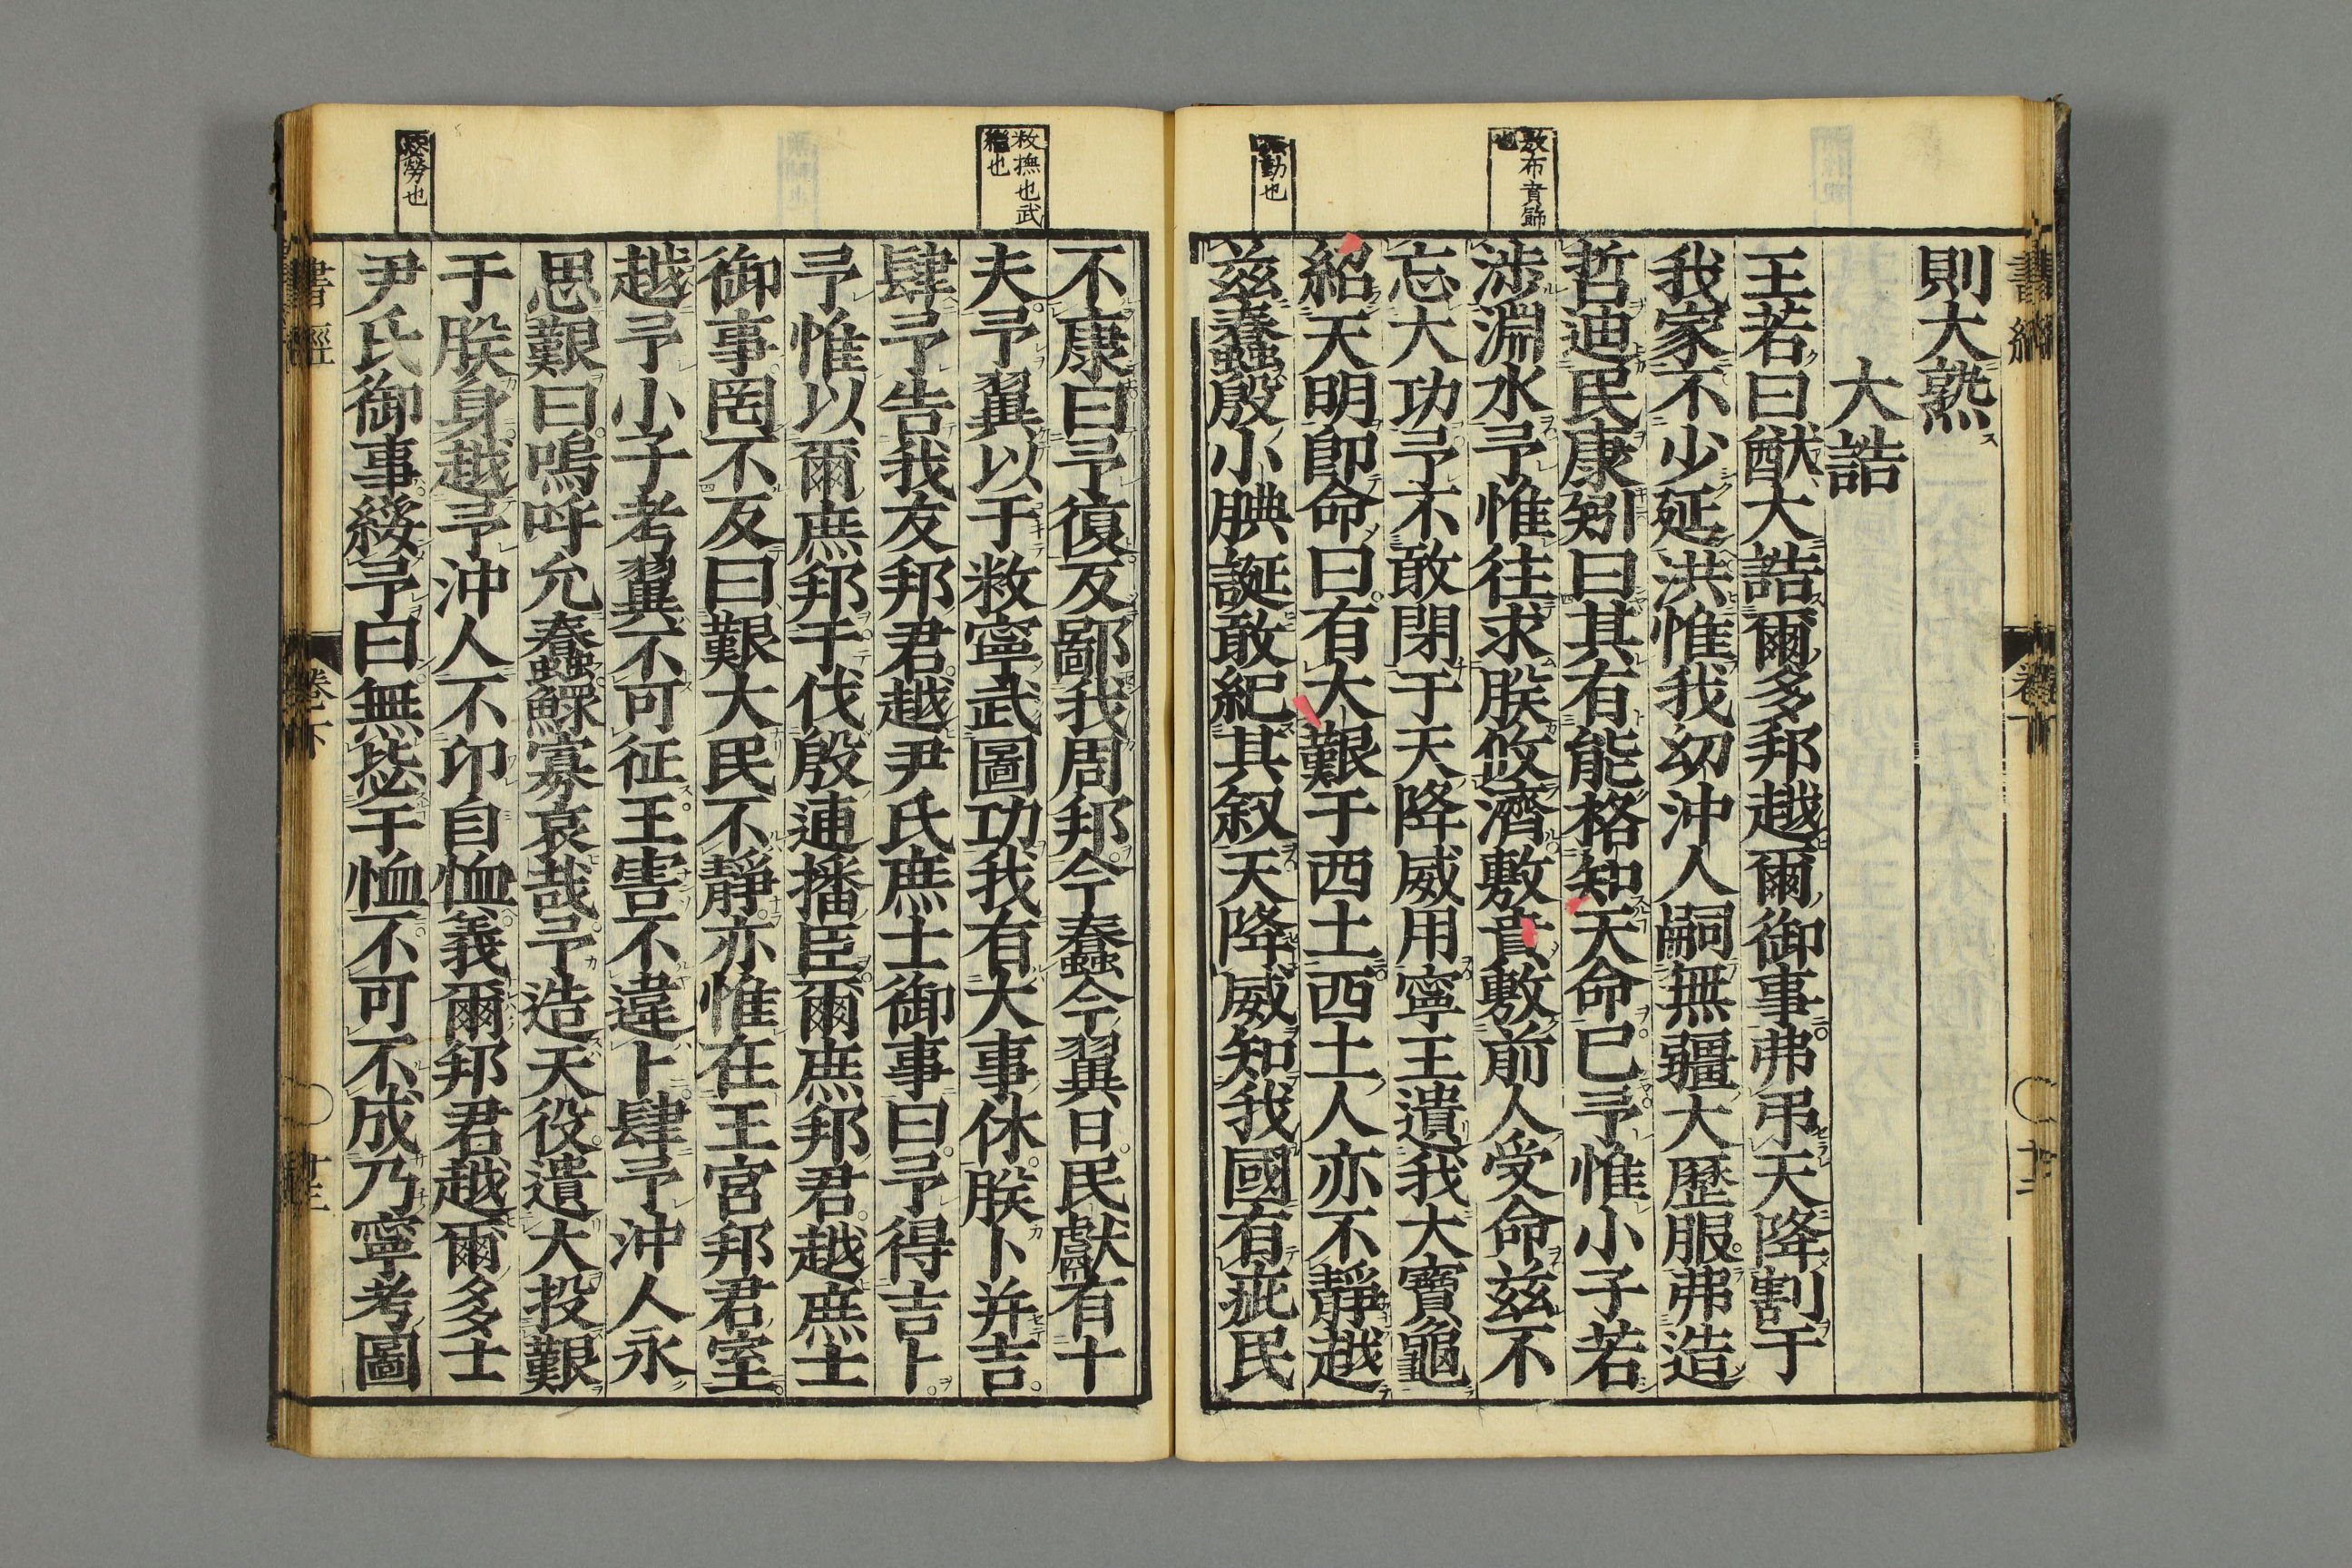 敷布賁飾也
蠢動也
則大熟
大誥
王若曰猷大誥爾多邦越爾御事弗弔天降割于
我家不少延洪惟我幼沖人嗣無疆大歷服弗造
哲迪民康矧曰其有能格知天命已予惟小子若
涉淵水予惟往求朕攸濟敷賁敷前人受命茲不
忘大功予不敢閉于天降威用寧王遺我大寶龜
紹天明卽命曰有大艱于西土西土人亦不靜越
茲蠢殷小腆誕敢紀其叙天降威知我國有疵民
書經
卷下
十二
敉撫也武繼也
勞也
不康曰予復反鄙我周邦今蠢今翼日民獻有十
夫予翼以于敉寧武圖功我有大事休朕卜并吉
肆予告我友邦君越尹氏庶士御事曰予得吉卜
予惟以爾庶邦于伐殷逋播臣爾庶邦君越庶士
御事罔不反曰艱大民不靜亦惟在王宮邦君室
越予小子考翼不可征王害不違卜肆予沖人永
思艱曰嗚呼允蠢鰥寡哀哉予造天役遺大投艱
于朕身越予沖人不卬自恤義爾邦君越爾多士
尹氏御事綏予曰無毖于恤不可不成乃寧考圖
書經
卷下